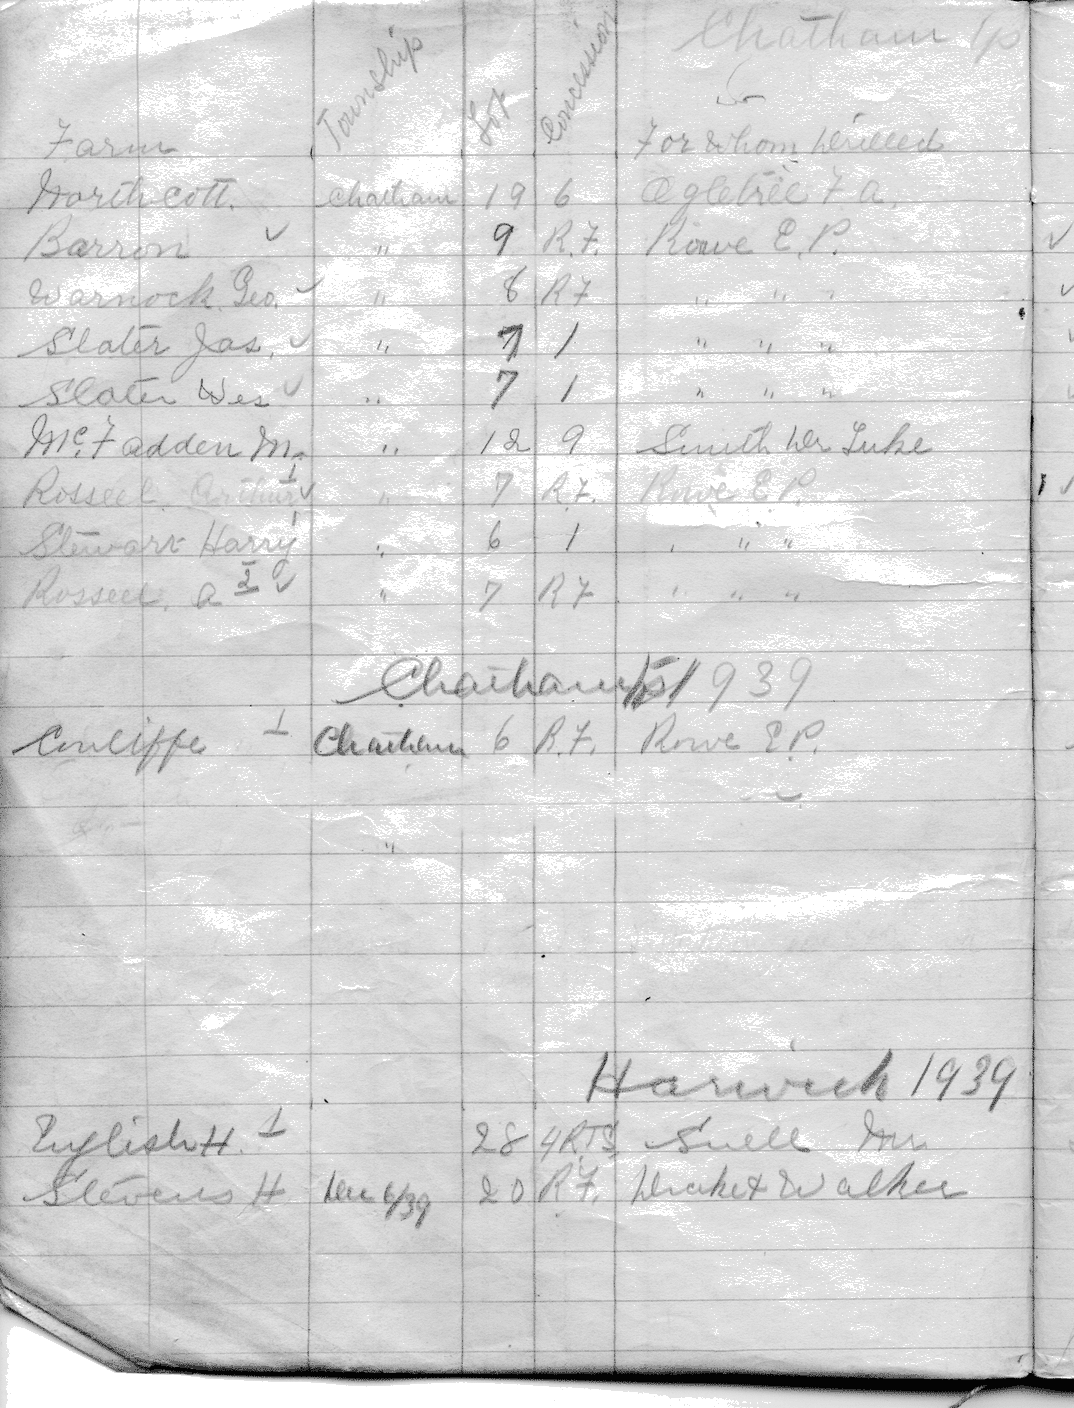 Chatham Tp
Farm Township Lot Concession For Whom Drilled
Northcott. Chatham 19 6 Ogletree F. A.
Barron ✓ " 9 R.F. Rowe E. P. ✓
Warnock Geo. ✓ " 8 R F " " " ✓
Slater Jas. ✓ " 7 1 " " " ✓
Slater Wes ✓ " 7 1 " " " ✓
McFadden M. " 12 9 Smith Dr Luke
Russell Arthur 1 ✓ " 7 R.F. Rowe E P. 1 ✓
Stewart Harry 1 " 6 1 " " "
Russell. A 2 ✓ " 7 R F " " "
Chatham 1939
Cunliffe 1 Chatham 6 R.F. Rowe E P.
"
Harwich 1939
English H. 1 28 4 R.T.S. Snell Wm
Stevens H Dec 6/39 20 R.F. Drake & Walker